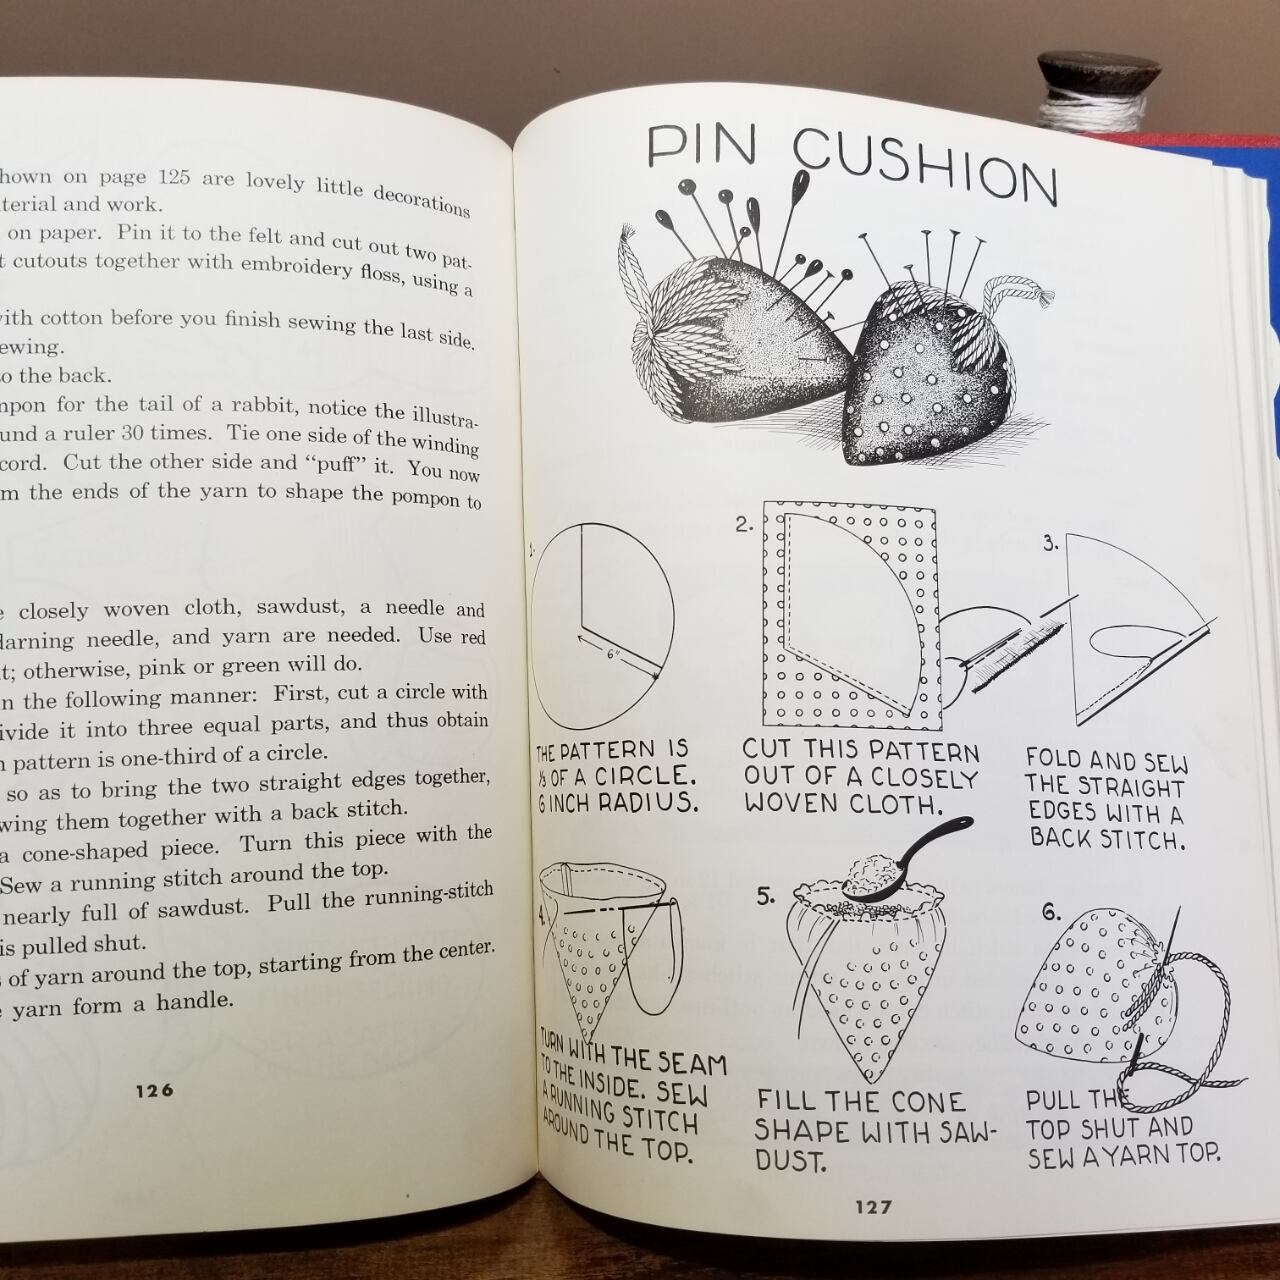 hown on page 125 are lovely little decorations
terial and work.
on paper. Pin it to the felt and cut out two pat-
t cutouts together with embroidery floss, using a
with cotton before you finish sewing the last side.
ewing.
to the back.
mpon for the tail of a rabbit, notice the illustra-
und a ruler 30 times. Tie one side of the winding
cord. Cut the other side and “puff” it. You now
m the ends of the yarn to shape the pompon to
e closely woven cloth, sawdust, a needle and
darning needle, and yarn are needed. Use red
t; otherwise, pink or green will do.
in the following manner: First, cut a circle with
ivide it into three equal parts, and thus obtain
n pattern is one-third of a circle.
so as to bring the two straight edges together,
wing them together with a back stitch.
a cone-shaped piece. Turn this piece with the
Sew a running stitch around the top.
nearly full of sawdust. Pull the running-stitch
is pulled shut.
s of yarn around the top, starting from the center.
e yarn form a handle.
126
PIN CUSHION
1.
6"
THE PATTERN IS
⅓ OF A CIRCLE.
6 INCH RADIUS.
2.
CUT THIS PATTERN
OUT OF A CLOSELY
WOVEN CLOTH.
3.
FOLD AND SEW
THE STRAIGHT
EDGES WITH A
BACK STITCH.
4.
TURN WITH THE SEAM
TO THE INSIDE. SEW
A RUNNING STITCH
AROUND THE TOP.
5.
FILL THE CONE
SHAPE WITH SAW-
DUST.
6.
PULL THE
TOP SHUT AND
SEW A YARN TOP.
127